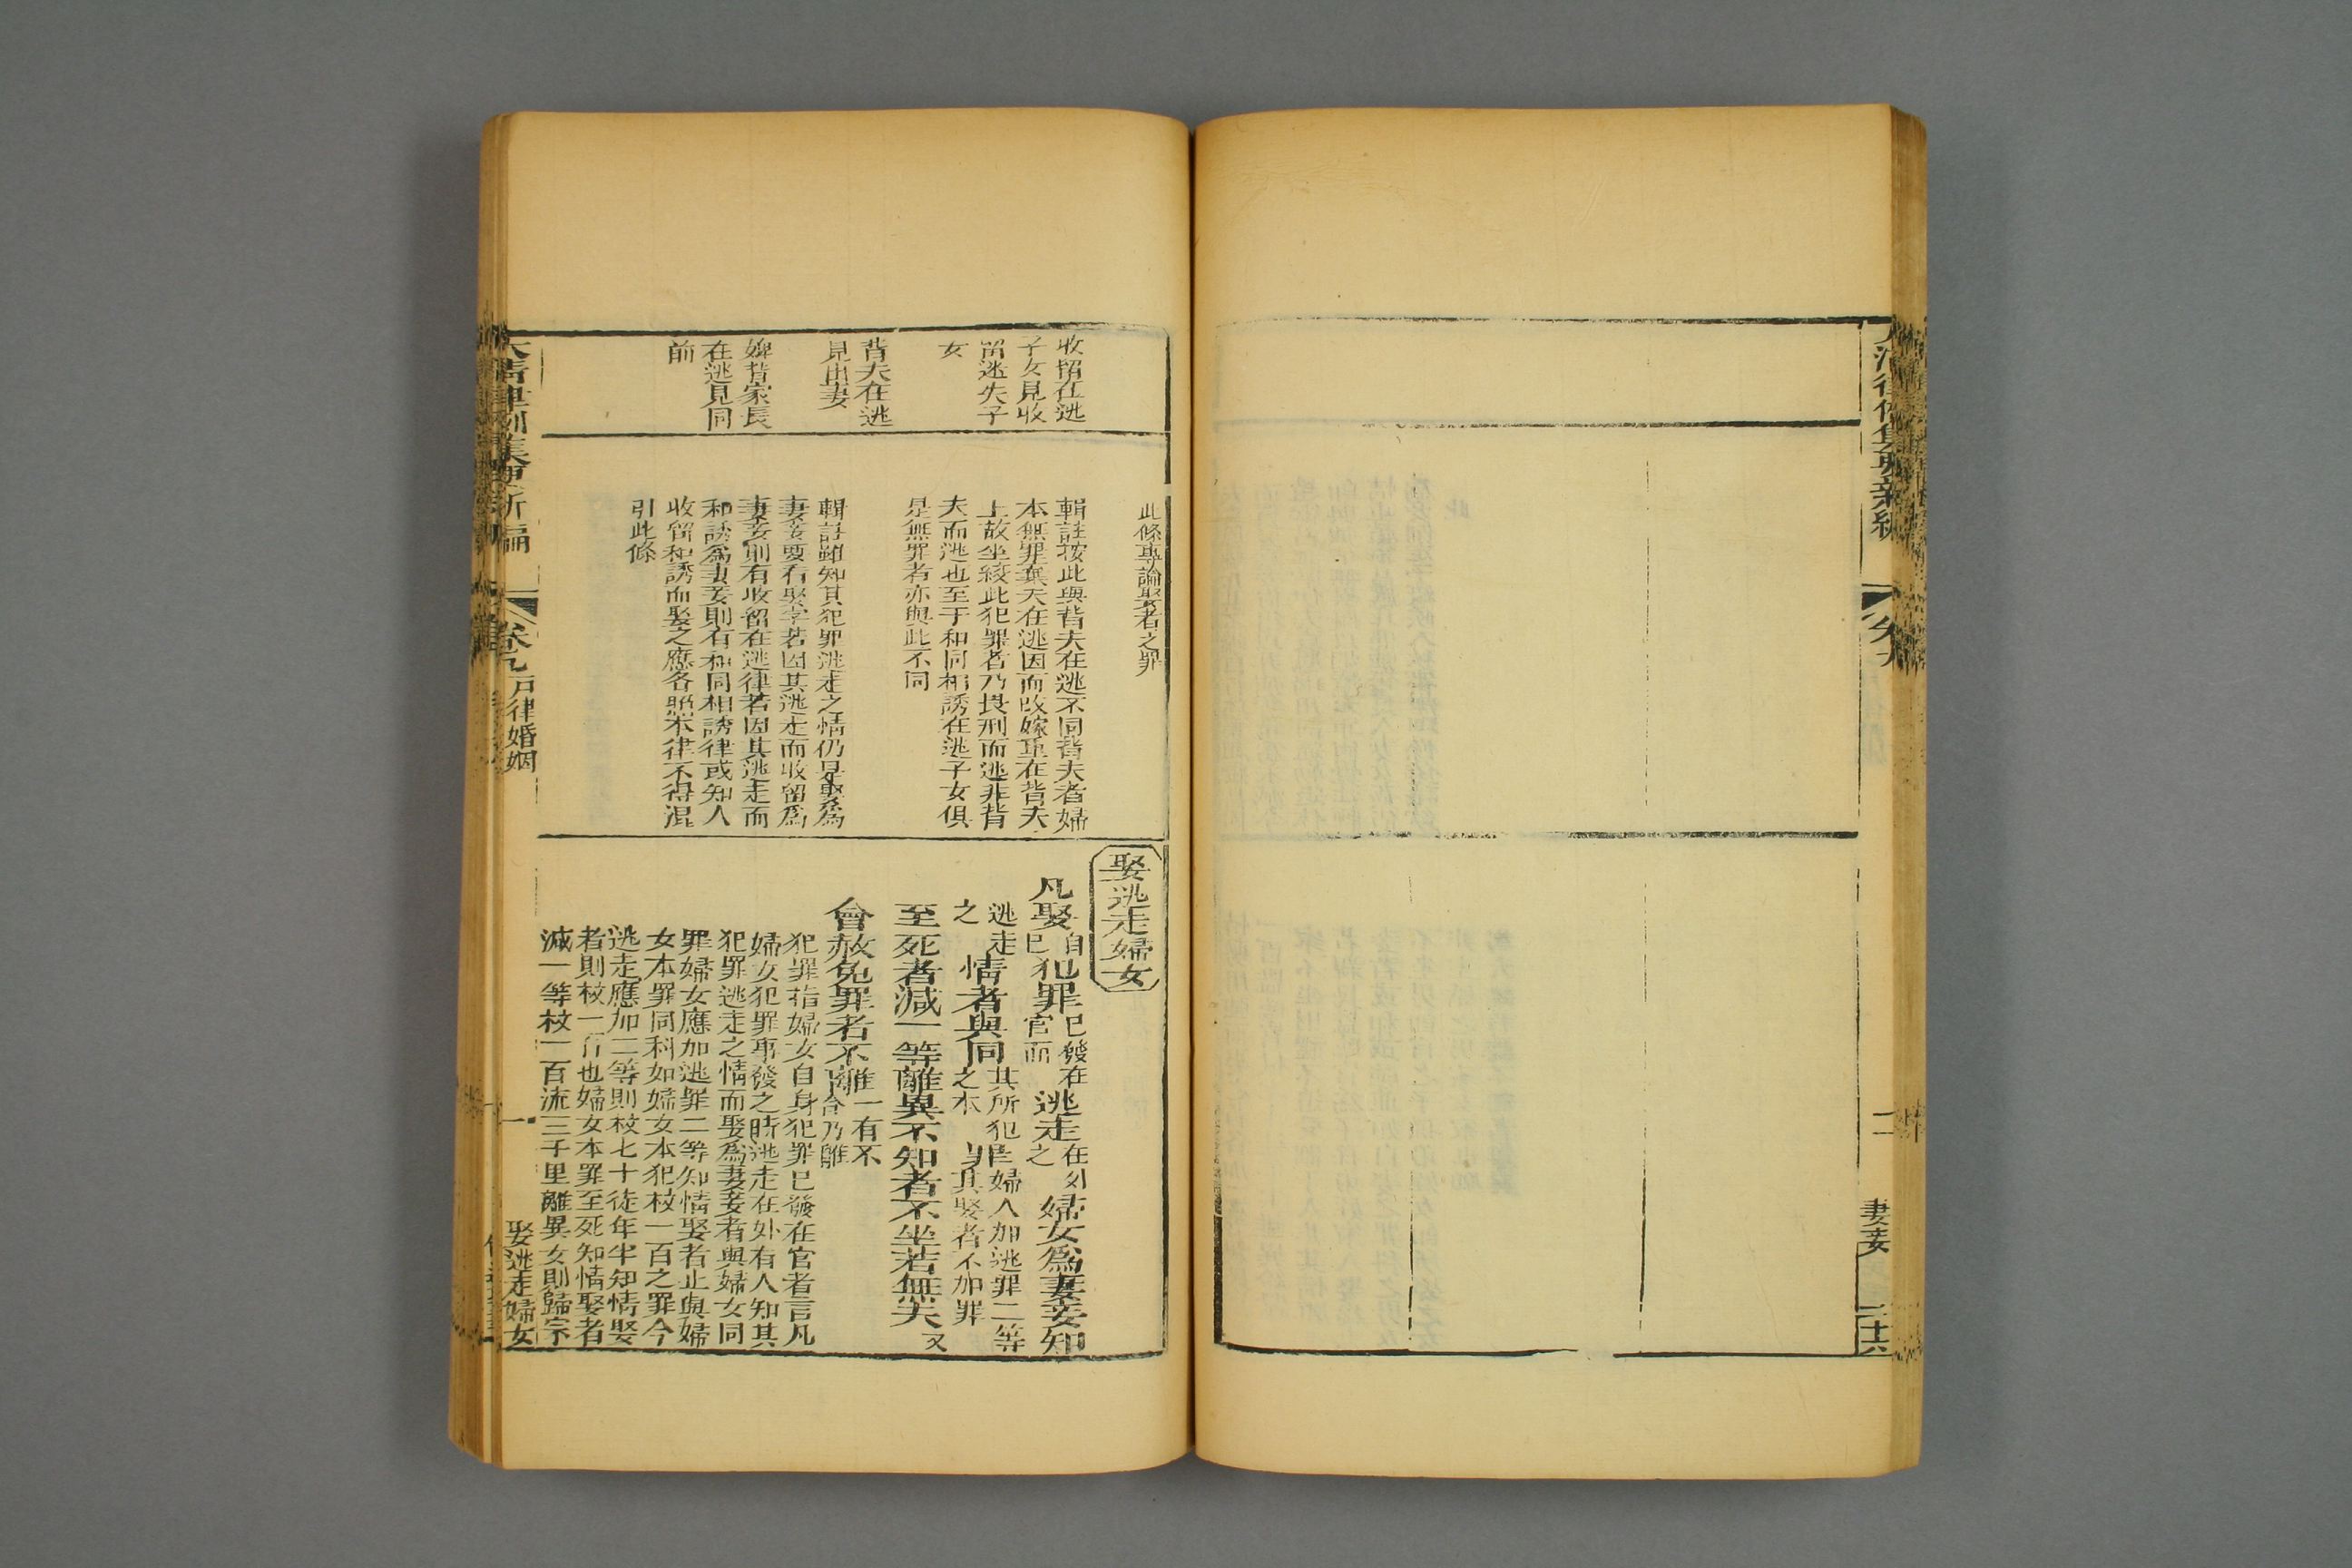 卷九
妻妾
二十六
收留在逃
子女見收
留迷失子
女
背夫在逃
見出妻
婢背家長
在逃見同
前
此條專論娶者之罪
輯註按此與背夫在逃不同背夫者婦
本無罪棄夫在逃因而改嫁重在背夫
上故坐絞此犯罪者乃畏刑而逃非背
夫而逃也至于和同相誘在逃子女俱
是無罪者亦與此不同
輯註雖知其犯罪逃走之情仍是娶爲
妻妾要看娶字若因其逃走而收留爲
妻妾則有收留在逃律若因其逃走而
和誘爲妻妾則有和同相誘律或知人
收留和誘而娶之應各照本律不得混
引此條
娶逃走婦女
凡娶自己犯罪已發在官而逃走在外之婦女爲妻妾知
逃走之情者與同其所犯之本罪婦人加逃罪二等其娶者不加罪
至死者減一等離異不知者不坐若無夫又
會赦免罪者不離一有不合乃離
犯罪指婦女自身犯罪已發在官者言凡
婦女犯罪事發之時逃走在外有人知其
犯罪逃走之情而娶爲妻妾者與婦女同
罪婦女應加逃罪二等知情娶者止與婦
女本罪同科如婦女本犯杖一百之罪今
逃走應加二等則杖七十徒年半知情娶
者則杖一百也婦女本罪至死知情娶者
減一等杖一百流三千里離異女則歸宗
大清律例集要新編
卷九戶律婚姻
娶逃走婦女